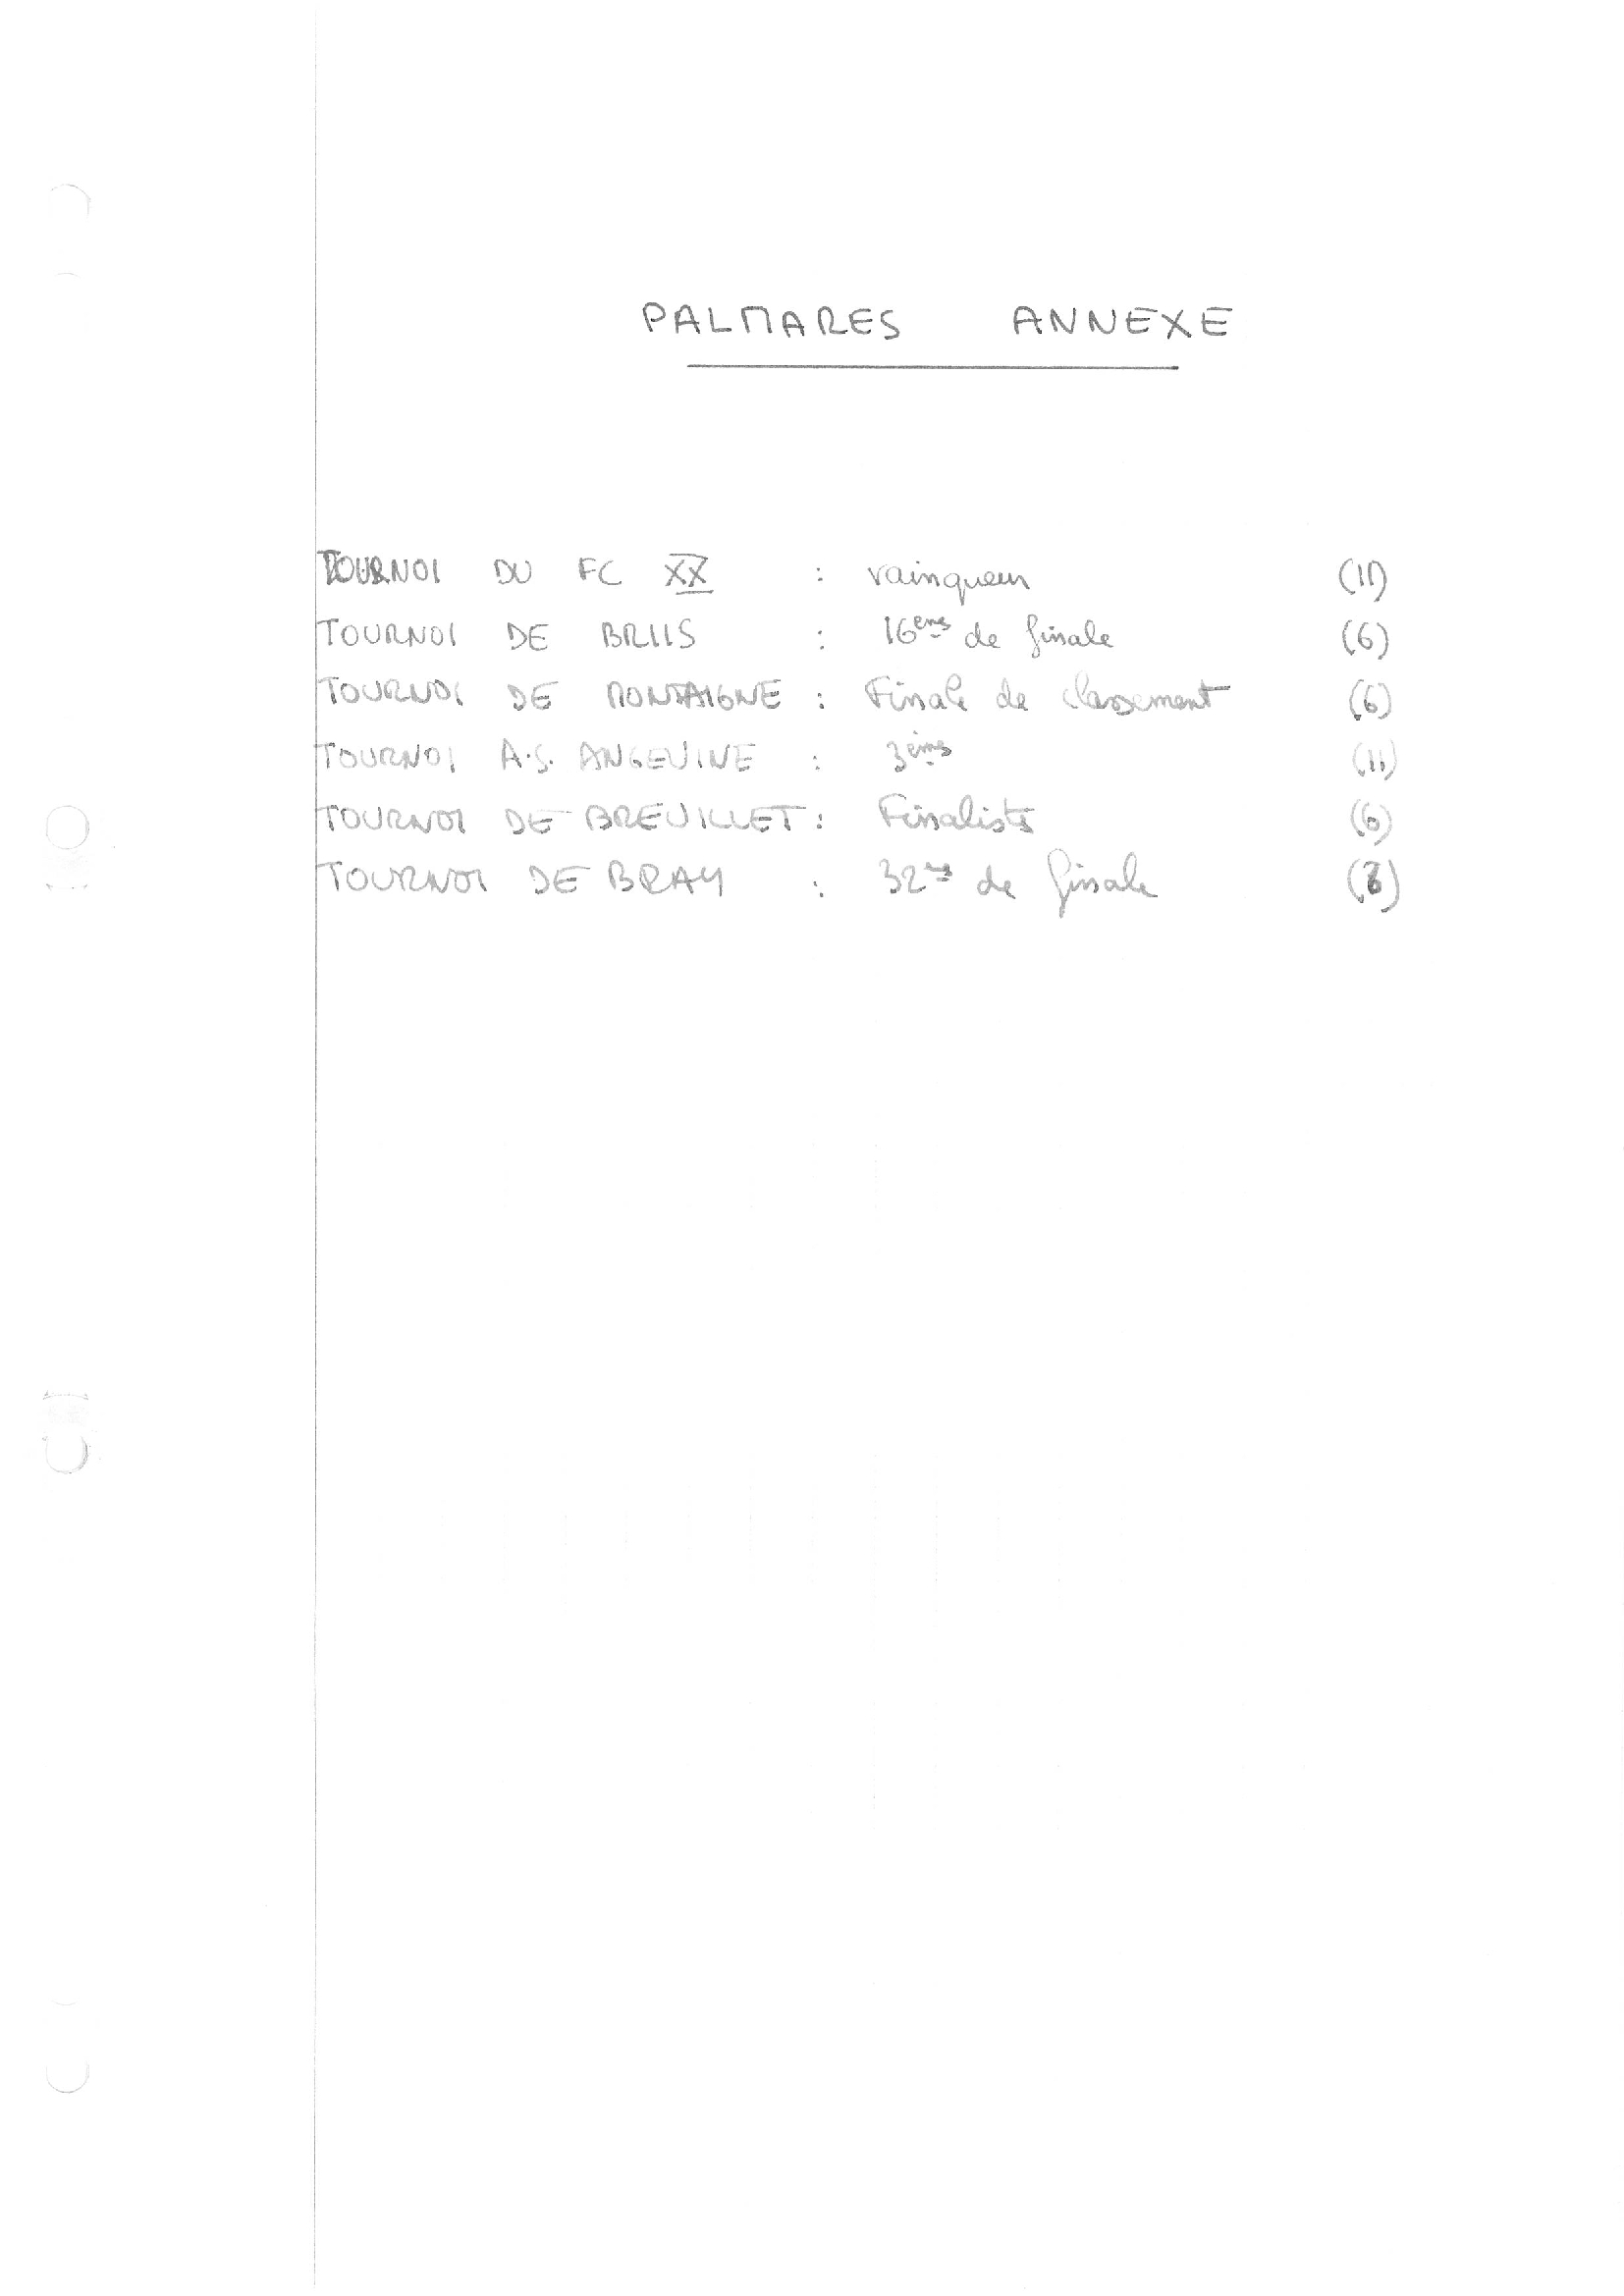 PALMARES ANNEXE
TOURNOI DU FC XX : vainqueur (11)
TOURNOI DE BRIIS : 16èmes de finale (6)
TOURNOI DE MONTAIGNE : Finale de classement (6)
TOURNOI A.S. ANGEVINE : 3ème (11)
TOURNOI DE BREUILLET : Finaliste (6)
TOURNOI DE BRAY : 32es de finale